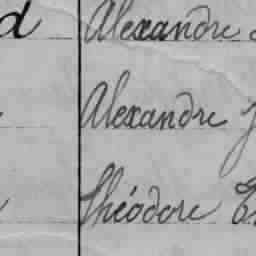 d Alexandre
Alexandre J
Théodore E